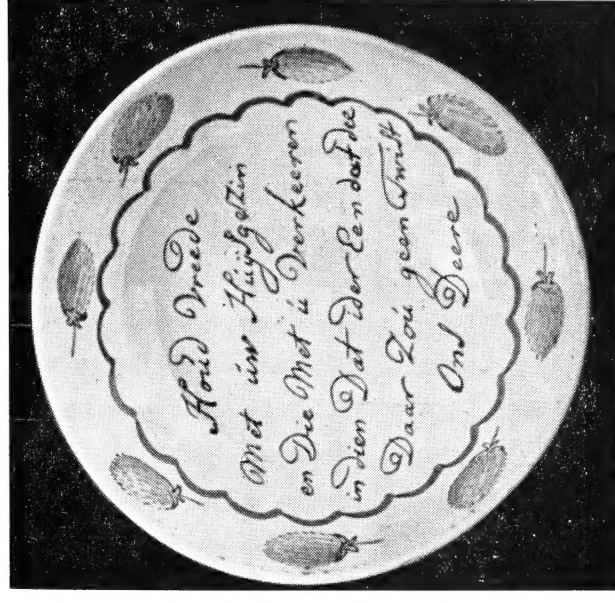 Houd Vreede
Met uw Huÿsgezin
en Die Met ú Verkeeren
in dien Dat ider Een dat dee
Daar Zoú geen Twist
Ons Deere